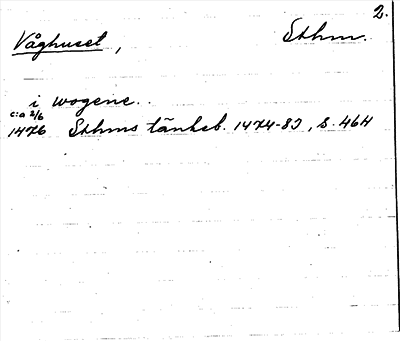 2.
Våghuset, Sthm.
i wogene.
c:a 2/6
1476 Sthms tänkeb. 1474-83, s. 464